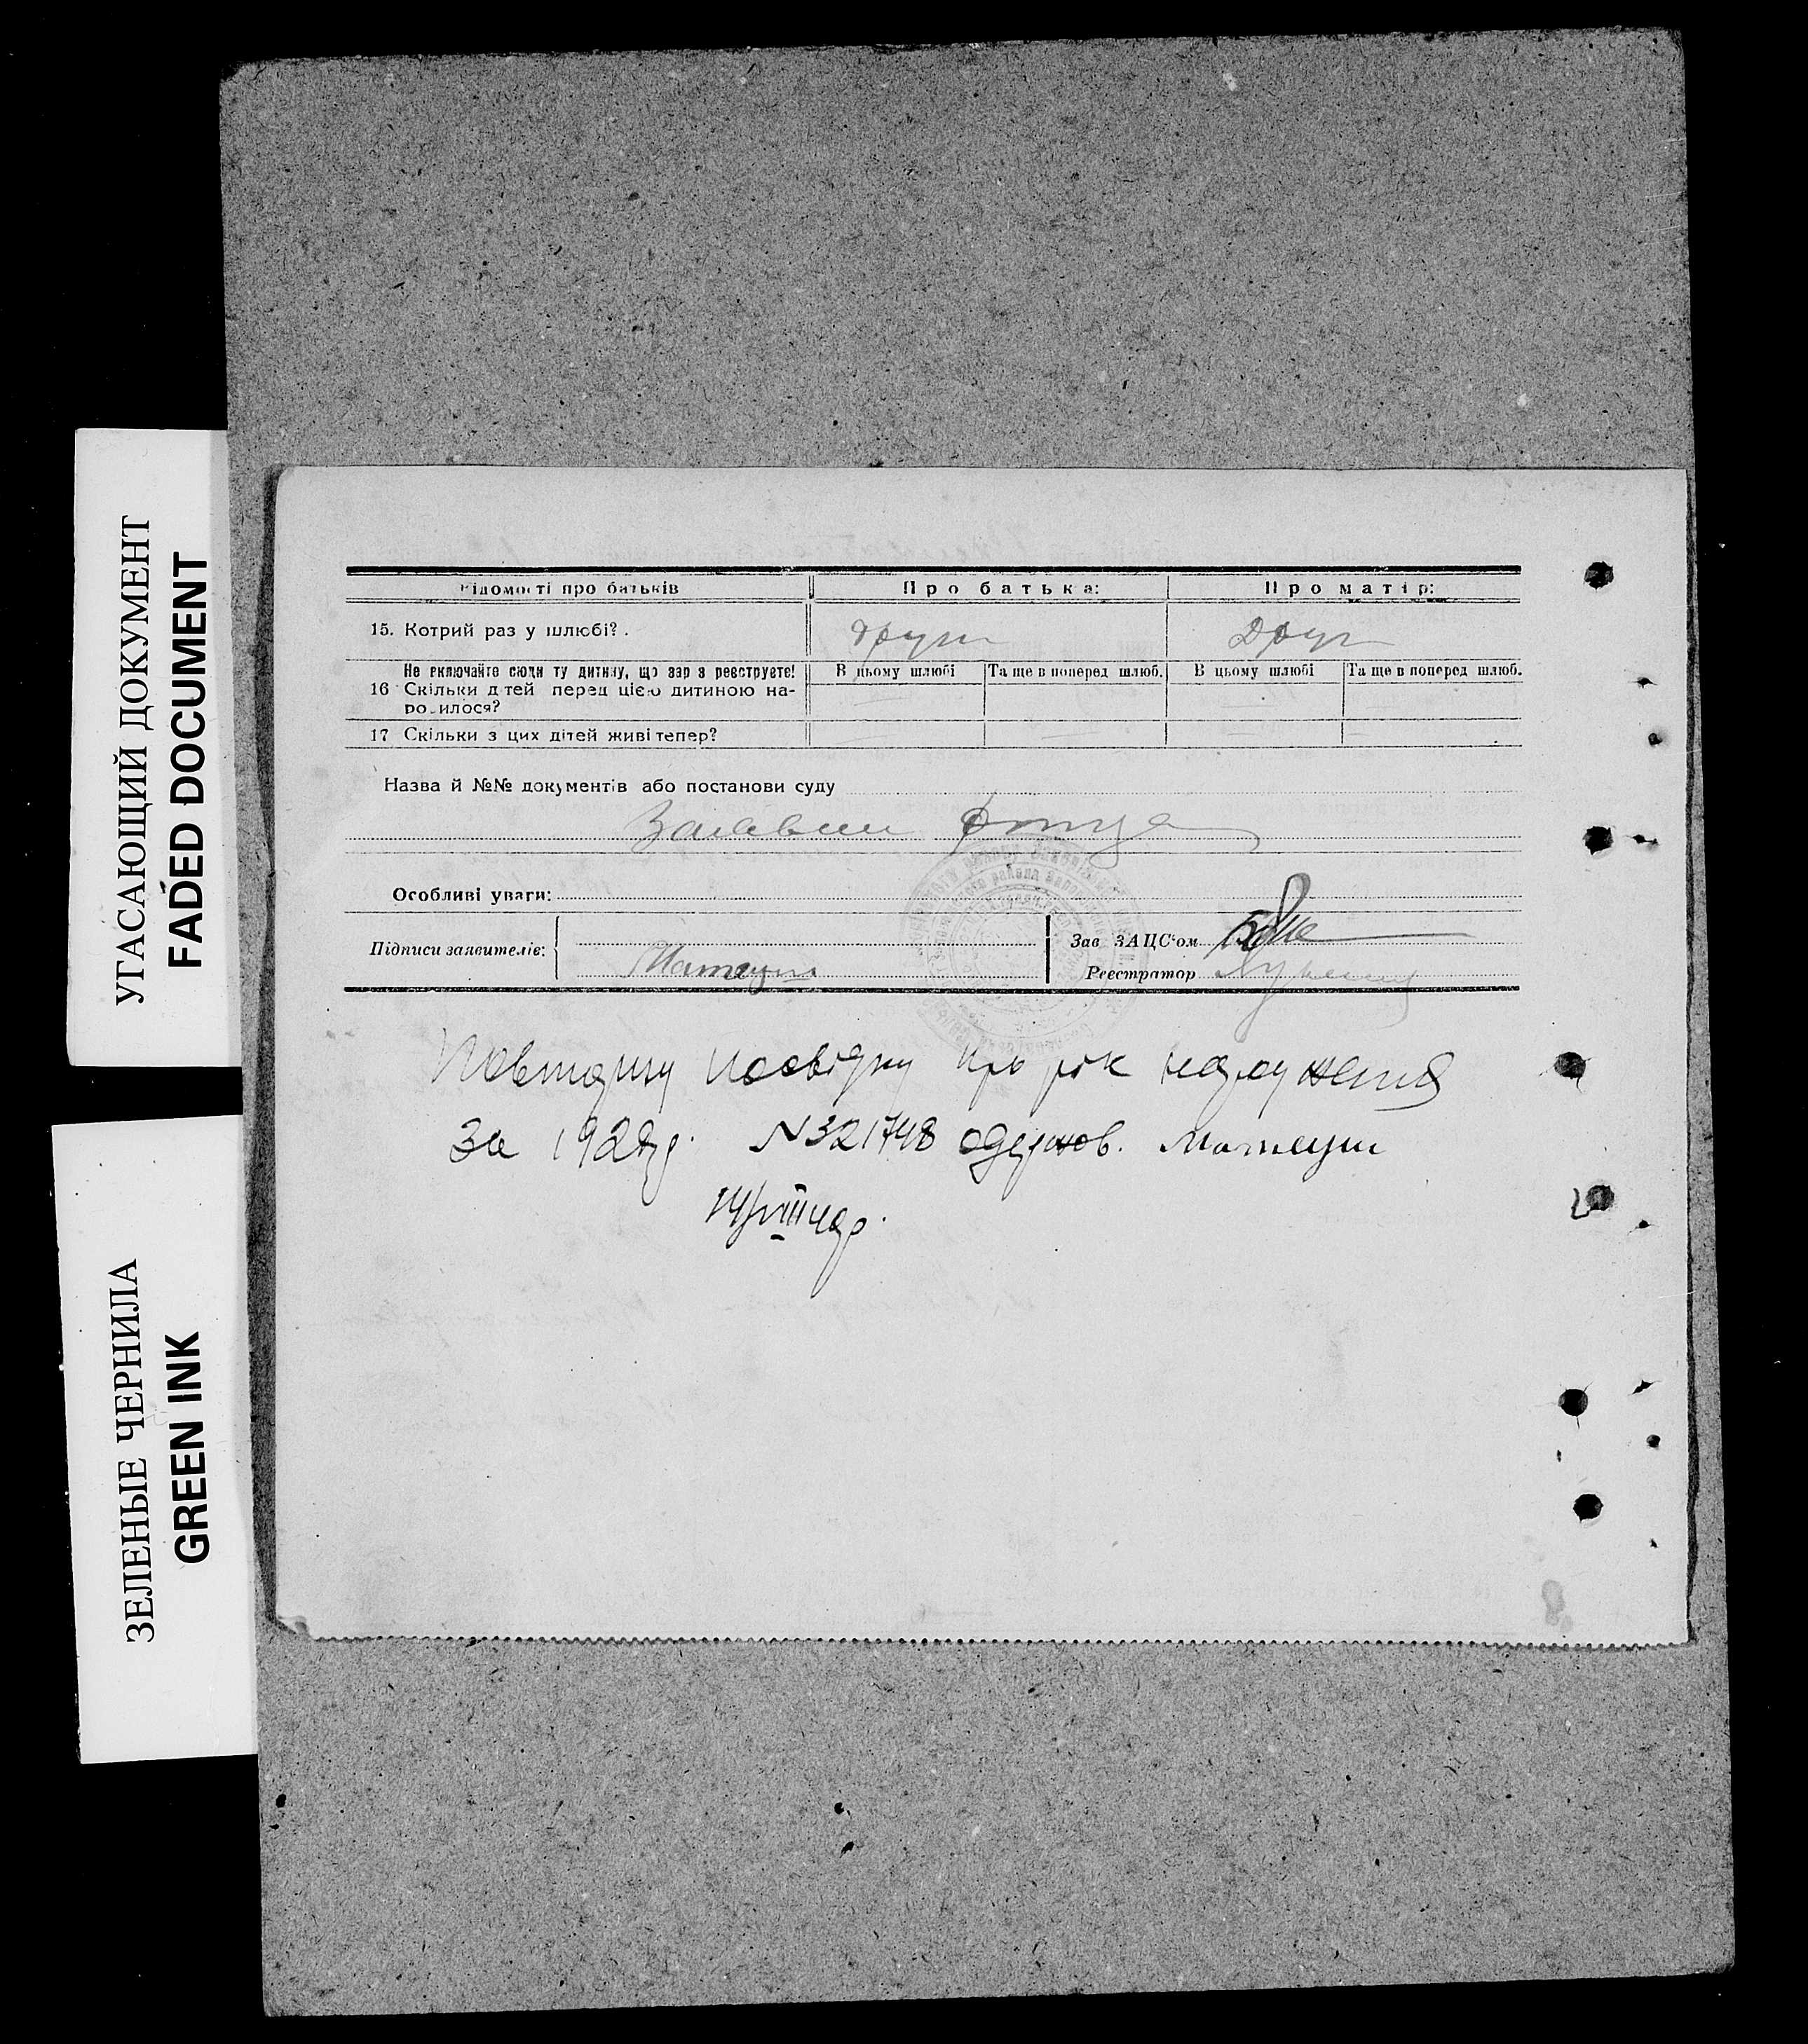 УГАСАЮЩИЙ ДОКУМЕНТ
FADED DOCUMENT
ЗЕЛЕНЫЕ ЧЕРНИЛА
GREEN INK
Відомості про батьків Про батька: Про матір:
15. Котрий раз у шлюбі? . друг друг
Не включайте сюди ту дитину, що зар з реєструєте! В цьому шлюбі Та ще в поперед шлюб. В цьому шлюбі Та ще в поперед шлюб.
16 Скільки дітей перед цією дитиною на-
родилося?
17 Скільки з цих дітей живі тепер?
Назва й №№ документів або постанови суду
Особливі уваги:
Підписи заявителів:
Зав ЗАЦС'ом
Реєстратор
Повторну посвідку про рік народження
за N 321748 одержов.